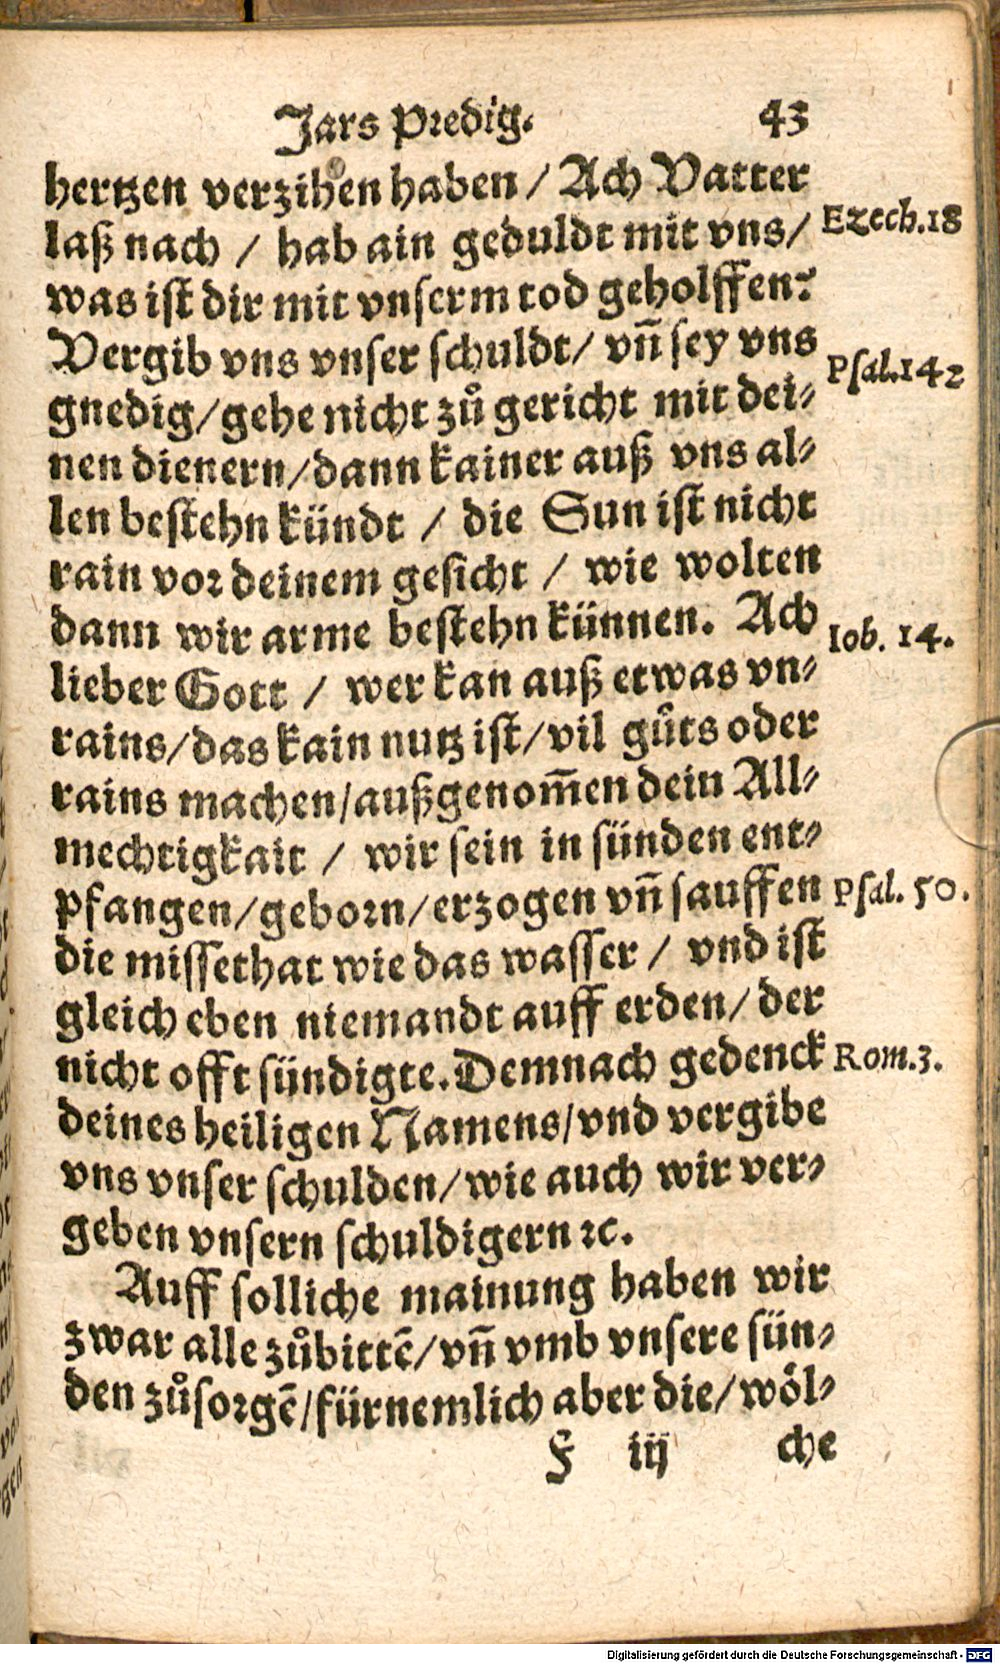 Jars Predig. 43
hertzen verzihen haben / Ach Vatter
laß nach / hab ain geduldt mit vns / Ezech.18
was ist dir mit vnserm tod geholffen?
Vergib vns vnser schuldt / vñ sey vns
gnedig / gehe nicht zů gericht mit dei- Psal.142
nen dienern / dann kainer auß vns al-
len bestehn kündt / die Sun ist nicht
rain vor deinem gesicht / wie wolten
dann wir arme bestehn künnen. Ach Iob. 14.
lieber Gott / wer kan auß etwas vn-
rains / das kain nutz ist / vil gůts oder
rains machen / außgenom̃en dein All-
mechtigkait / wir sein in sünden ent-
pfangen / geborn / erzogen vñ sauffen Psal. 50.
die missethat wie das wasser / vnd ist
gleich eben niemandt auff erden / der
nicht offt sündigte. Demnach gedenck Rom.3.
deines heiligen Namens / vnd vergibe
vns vnser schulden / wie auch wir ver-
geben vnsern schuldigern ꝛc.
Auff solliche mainung haben wir
zwar alle zůbittẽ / vñ vmb vnsere sün-
den zůsorgẽ / fürnemlich aber die / wöl-
F iij che
Digitalisierung gefördert durch die Deutsche Forschungsgemeinschaft - DFG